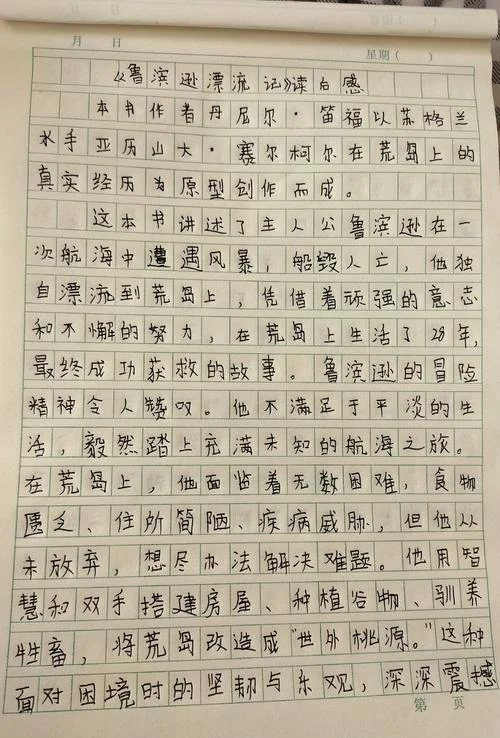 月 日 星期( )
《鲁滨逊漂流记》读后感
本书作者丹尼尔·笛福以苏格兰
水手亚历山大·赛尔柯尔在荒岛上的
真实经历为原型创作而成。
这本书讲述了主人公鲁滨逊在一
次航海中遭遇风暴，船毁人亡，他独
自漂流到荒岛上，凭借着顽强的意志
和不懈的努力，在荒岛上生活了28年，
最终成功获救的故事。鲁滨逊的冒险
精神令人赞叹。他不满足于平淡的生
活，毅然踏上充满未知的航海之旅。
在荒岛上，他面临着无数困难，食物
匮乏、住所简陋、疾病威胁，但他从
未放弃，想尽办法解决难题。他用智
慧和双手搭建房屋、种植谷物、驯养
牲畜，将荒岛改造成“世外桃源。”这种
面对困境时的坚韧与乐观，深深震撼
第 页